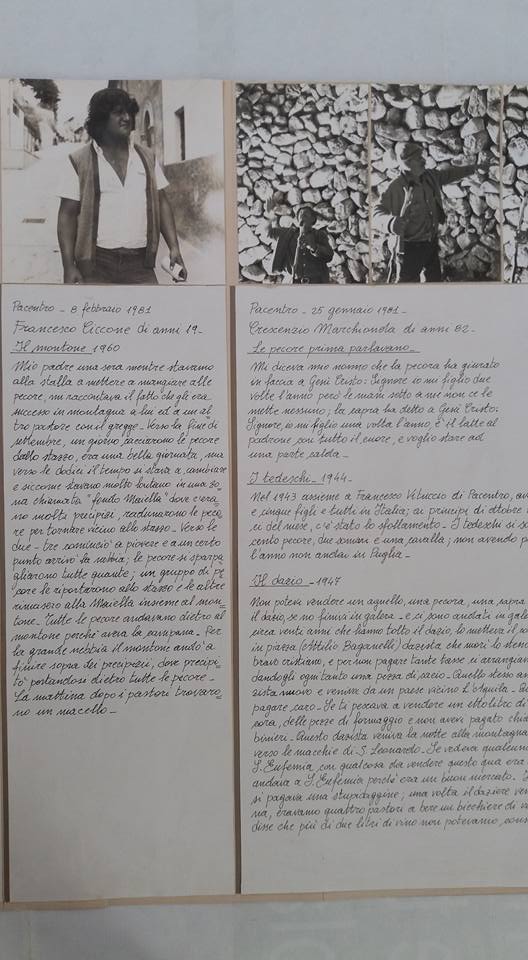 Pacentro - 8 febbraio 1981
Francesco Ciccone di anni 19-
Il montone 1960
Mio padre una sera mentre stavamo
alla stalla a mettere a mangiare alle
pecore, mi raccontava il fatto che gli era
successo in montagna a lui ed a un al=
tro pastore con il gregge. Verso la fine di
settembre, un giorno, cacciarono le pecore
dallo stazzo, era una bella giornata, ma
verso le dodici il tempo si stava a cambiare
e siccome stavano molto lontano in una zo=
na chiamata "fondo Maiella" dove c'era=
no molti precipizi, radunarono le peco=
re per tornare vicino allo stazzo - Verso le
due - tre cominciò a piovere e a un certo
punto arrivò la nebbia; le pecore si sparpa=
gliarono tutte quante; un gruppo di pe=
core le riportarono allo stazzo e le altre
rimasero alla Maiella insieme al mon=
tone. Tutte le pecore andavano dietro al
montone perché aveva la campana. Per
la grande nebbia il montone andò a
finire sopra dei precipizi, dove precipi=
tò portandosi dietro tutte le pecore -
La mattina dopo i pastori trovaro=
no un macello -
Pacentro - 25 gennaio 1981 -
Crescenzio Marchionda di anni 82 -
Le pecore prima parlavano -
Mi diceva mio nonno che la pecora ha giurato
in faccia a Gesù Cristo: Signore io mi figlio due
volte l'anno però le mani sotto a me non ce le
mette nessuno; la capra ha detto a Gesù Cristo:
Signore, io mi figlio una volta l'anno, e il latte al
padrone con tutto il cuore, e voglio stare ad
una parte calda -
I tedeschi - 1944 -
Nel 1943 assieme a Francesco Vituccio di Pacentro,
e cinque figli e tutti in Italia; ai principi di ottobre
ci del mese, c'è stato lo sfollamento - I tedeschi si
cento pecore, due somari e una cavalla; non avendo
l'anno non andai in Puglia -
Il dazio - 1947
Non potevi vendere un agnello, una pecora, una capra
il dazio, se no finivi in galera - e ci sono andati in
circa venti anni che hanno tolto il dazio, lo metteva il
in piazza (Attilio Paganelli) dazista che morì lo
bravo cristiano, e per non pagare tante tasse ci arrangia
dandogli ogni tanto una pezza di cacio - Quello stesso
zista nuovo e veniva da un paese vicino L'Aquila -
pagare, caro - Se ti pescava a vendere un ettolitro di
cora, delle pezze di formaggio e non avevi pagato
binieri - Questo dazista veniva la notte alla montagna
verso le macchie di S. Leonardo - Se vedeva
S. Eufemia, con qualcosa da vendere questo qua era
andava a S. Eufemia perché era un buon mercato -
si pagava una stupidaggine; una volta il daziere
na, eravamo quattro pastori a bere un bicchiere di
disse che più di due litri di vino non potevamo,